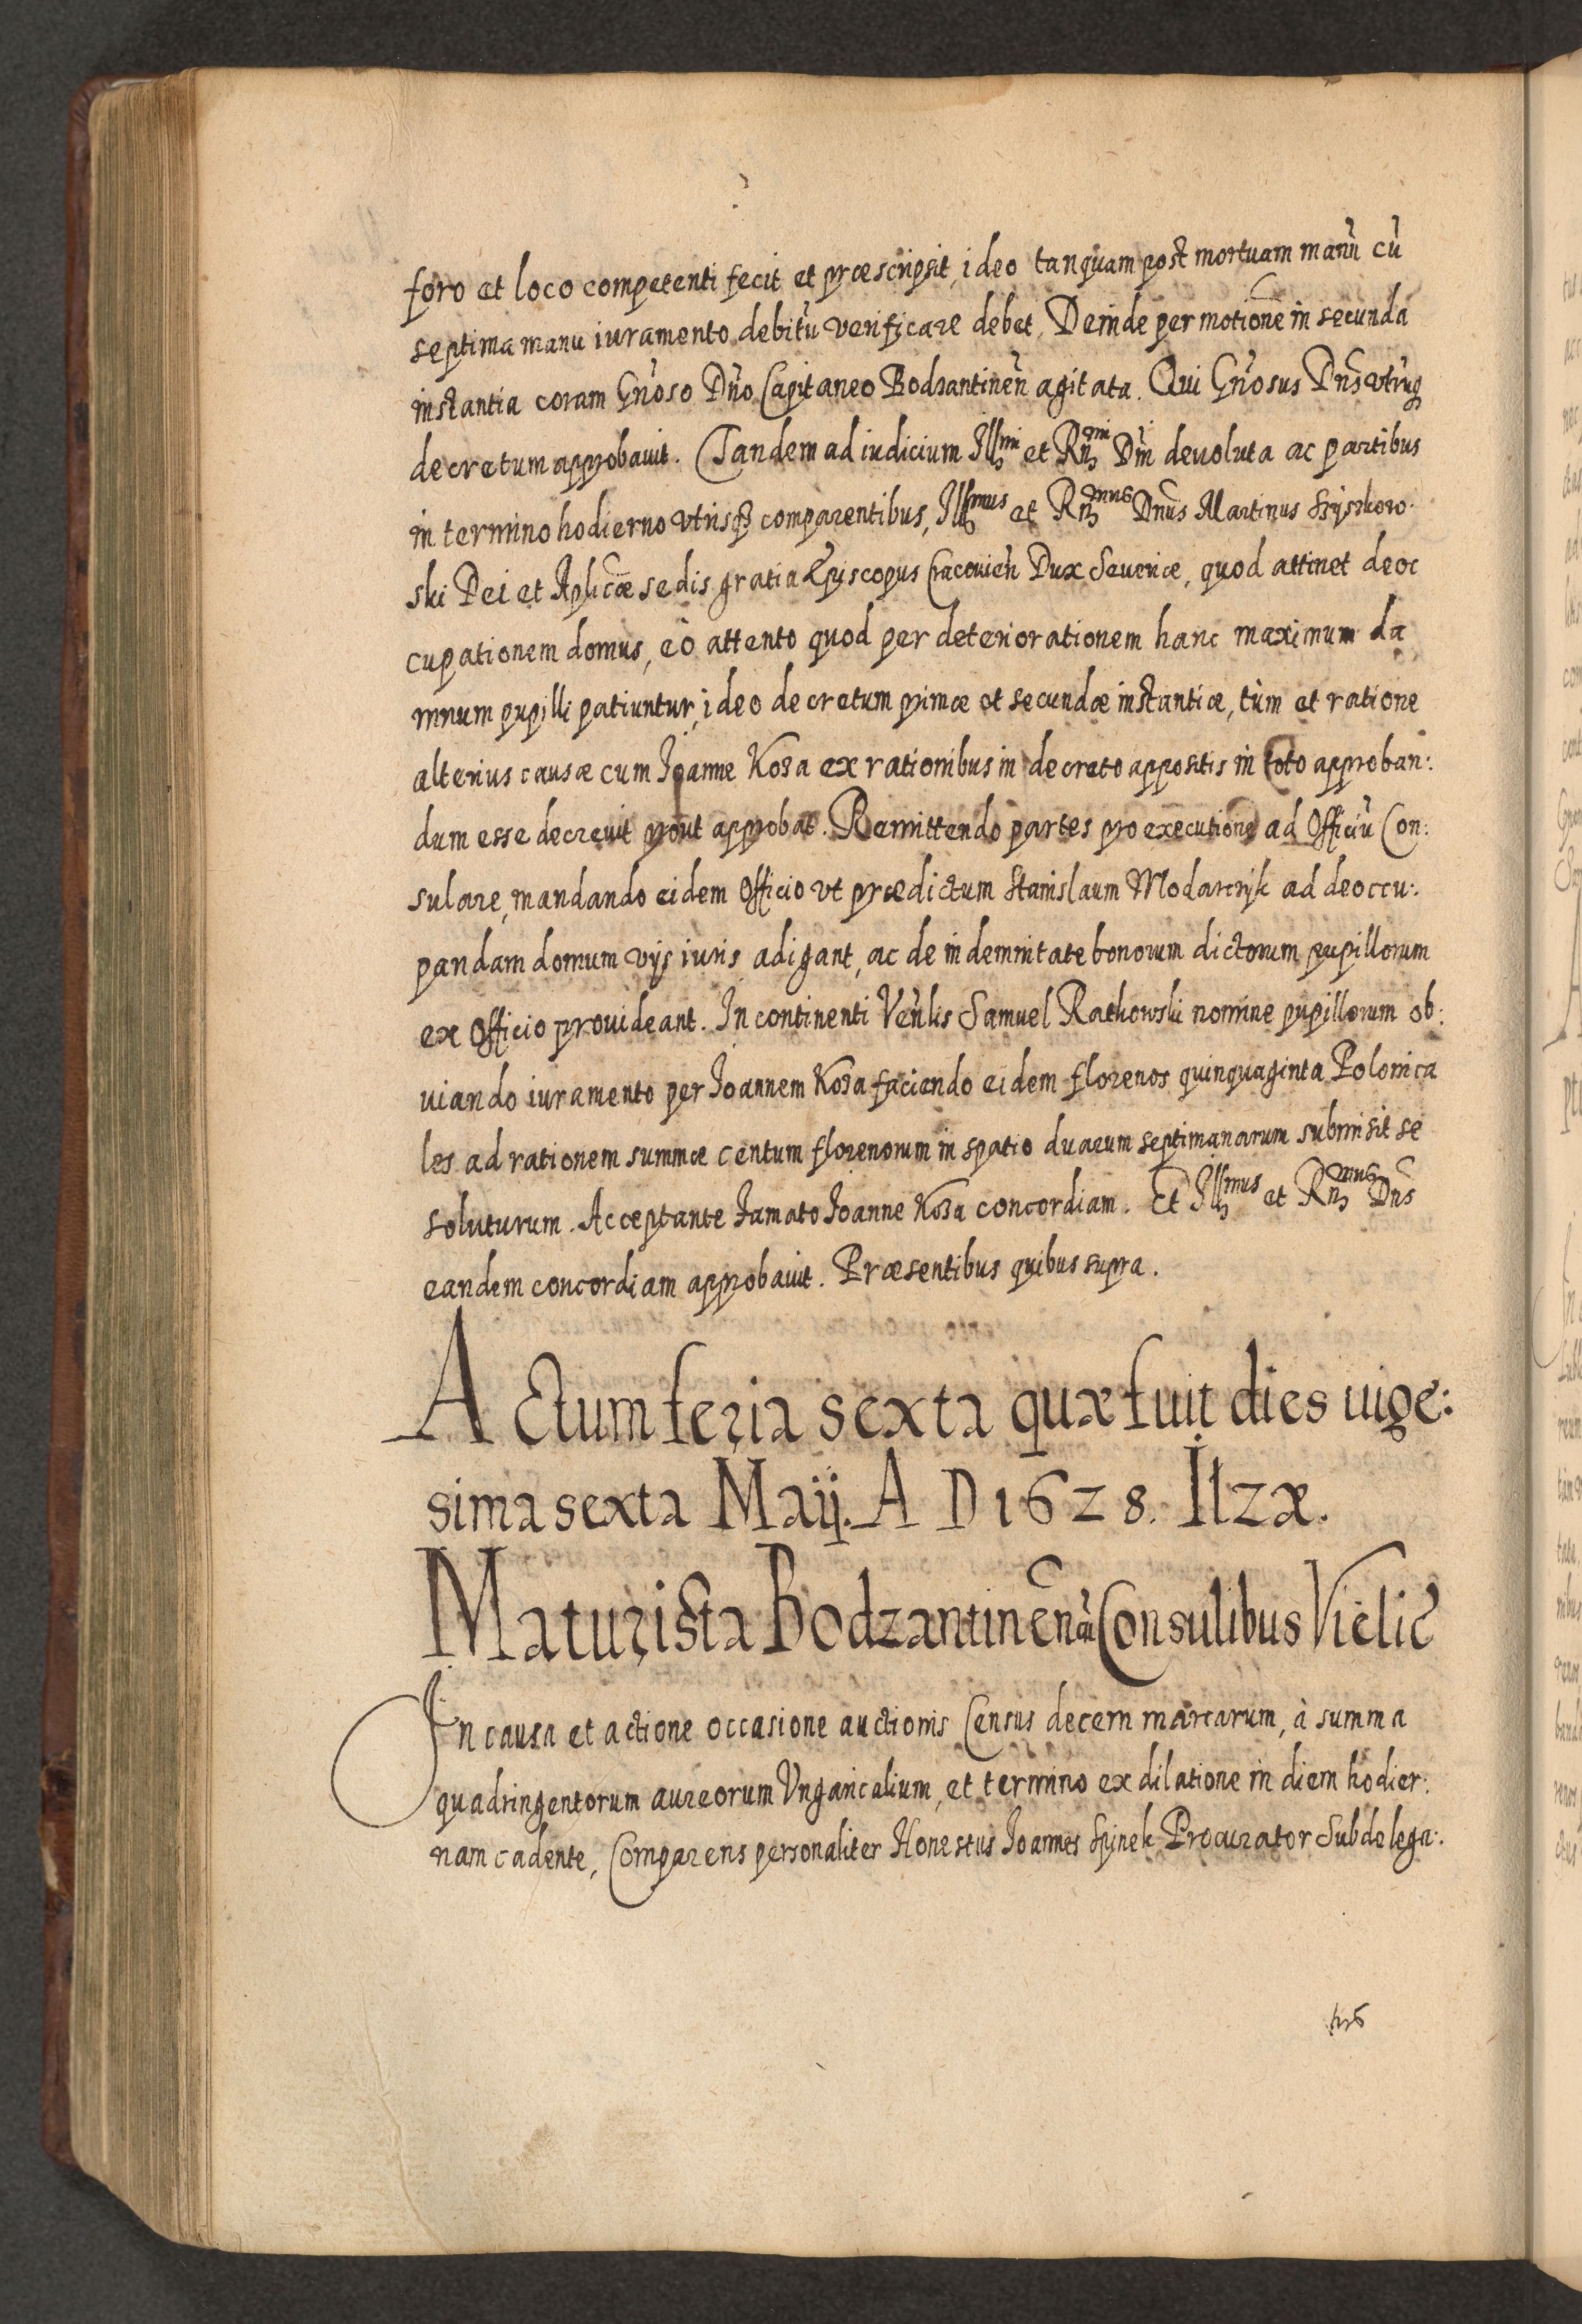 foro et loco competenti fecit et præscripsit, ideo tanquam post mortuam manũ cũ
septima manu iuramento debitũ verificare debet. Deinde per motionẽ in secunda
instantia coram Gñoso Dño Capitaneo Bodzantineñ agitata. Qui Gñosus Dñs vtrũq
decretum approbauit. Tandem ad iudicium Illmi et Rñmi Dñi deuoluta ac partibus
in termino hodierno vtrisq comparentibus, Illmus et Rñmus Dñus Martinus Szyszkow.
ski Dei et Aplicæ sedis gratia Episcopus Cracouieñ Dux Seueriæ, quod attinet deoc
cupationem domus, eò attento quod per deteriorationem hanc maximum da
mnum pupilli patiuntur, ideo decretum primæ et secundæ instantiæ, tùm et ratione
alterius causæ cum Joanne Koza ex rationibus in decreto appositis in toto approban:
dum esse decreuit prout approbat. Remittendo partes pro executione ad Officiũ Con:
sulare, mandando eidem Officio vt prædictum Stanislaum Modarczyk ad deoccu:
pandam domum vijs iuris adigant, ac de indemnitate bonorum dictorum pupillorum
ex Officio prouideant. In continenti Veñlis Samuel Rathowski nomine pupillorum ob:
uiando iuramento per Joannem Koza faciendo eidem florenos quinquaginta Polonica
les ad rationem summæ centum florenorum in spatio duarum septimanarum submisit se
soluturum. Acceptante Jamato Joanne Koza concordiam. Et Illmus et Rñmus Dñs
eandem concordiam approbauit. Præsentibus quibus supra.
Actum feria sexta quæ fuit dies uige:
sima sexta Maij. A D 1628. Ilzæ.
Maturista Bodzantineñ cũ Consulibus Vielic
In causa et actione occasione auctionis Census decem marcarum, à summa
quadringentorum aureorum Vngaricalium, et termino ex dilatione in diem hodier:
nam cadente, Comparens personaliter Honestus Joannes Spinek Procurator Subdelega:
tus